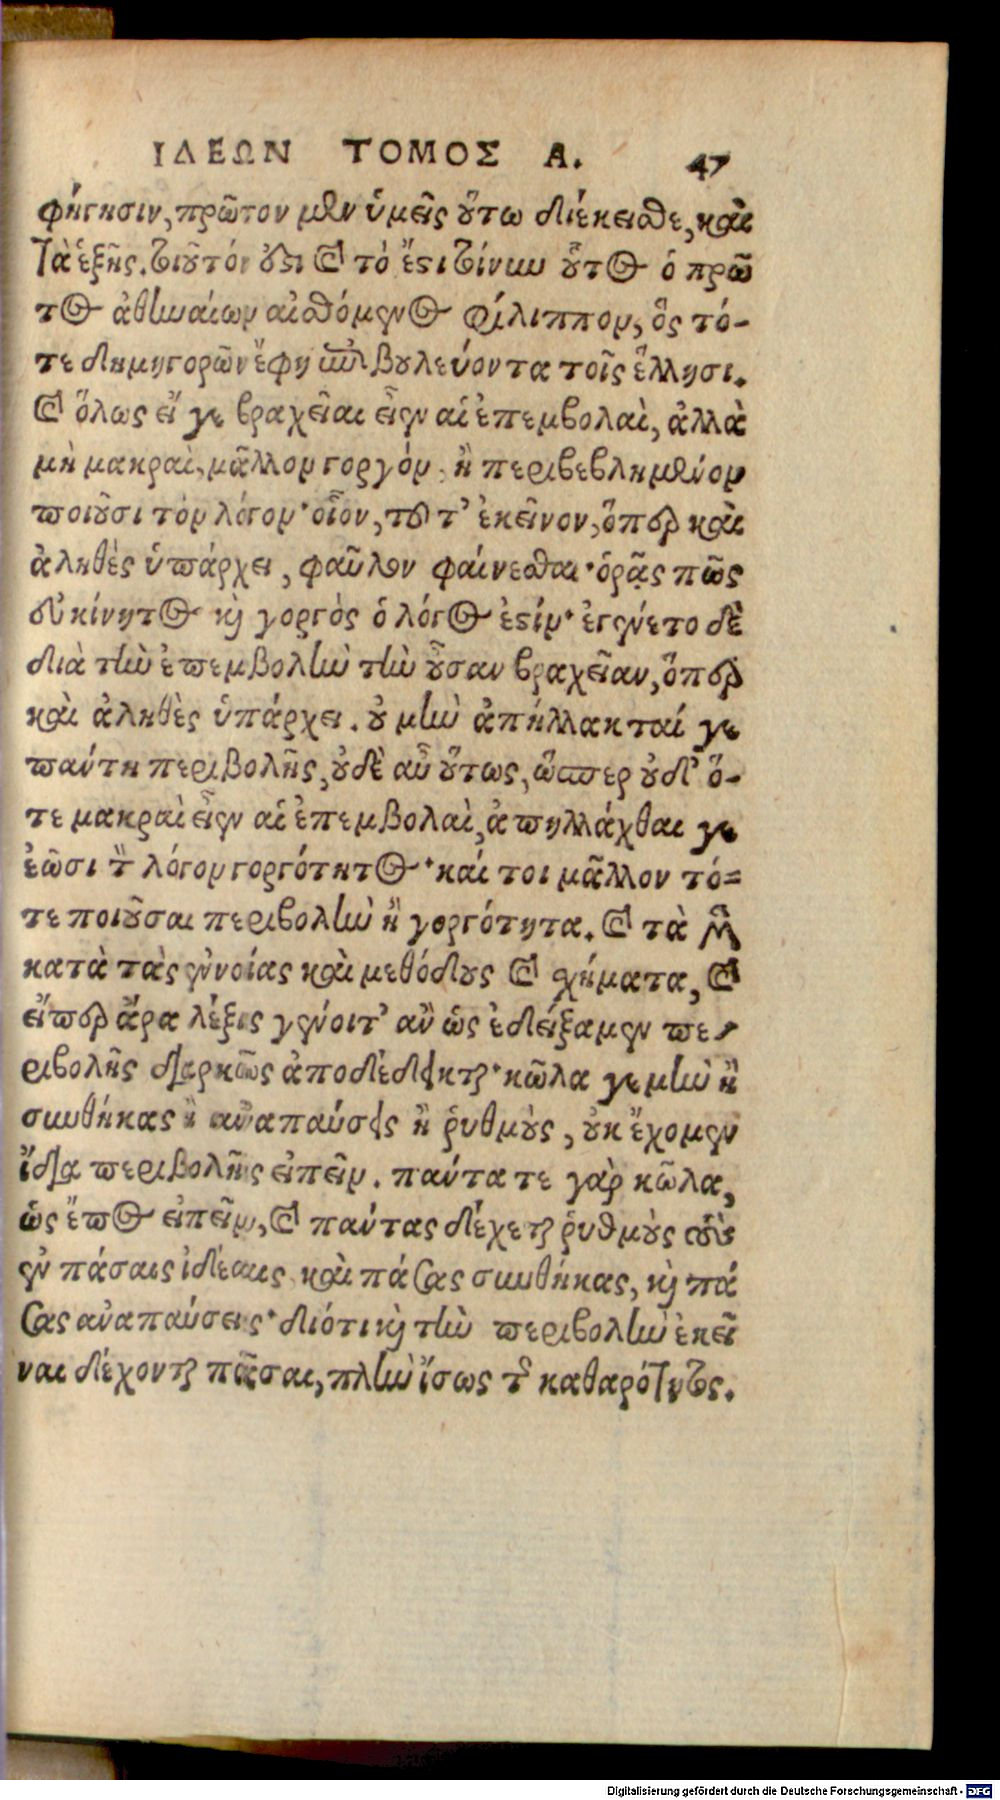 ΙΔΕΩΝ ΤΟΜΟΣ Α. 47
φήγησιν, πρῶτον μὲν ὑμεῖς οὕτω διέκεισθε, καὶ
τὰ ἑξῆς. τοιοῦτόν ἐστι καὶ τὸ ἔστι τοίνυν οὗτος ὁ πρῶ
τος ἀθηναίων αἰσθόμενος φίλιππον, ὅς τό-
τε δημηγορῶν ἔφη συμβουλεύοντα τοῖς ἕλλησι.
καὶ ὅλως εἴ γε βραχεῖαι εἶεν αἱ ἐπεμβολαὶ, ἀλλὰ
μὴ μακραὶ, μᾶλλον γοργόν ἢ περιβεβλημένον
ποιοῦσι τὸν λόγον· οἷον, τό τ' ἐκεῖνον, ὅπερ καὶ
ἀληθὲς ὑπάρχει, φαῦλον φαίνεσθαι· ὁρᾷς πῶς
εὐκίνητος καὶ γοργὸς ὁ λόγος ἐστίν· ἐγένετο δὲ
διὰ τὴν ἐπεμβολὴν τὴν οὖσαν βραχεῖαν, ὅπερ
καὶ ἀληθὲς ὑπάρχει. οὐ μὴν ἀπήλλακταί γε
πάντη περιβολῆς, οὐδὲ αὖ οὕτως, ὥσπερ οὐδ' ὅ-
τε μακραὶ εἶεν αἱ ἐπεμβολαὶ, ἀπηλλάχθαι γε
ἐῶσι τὸν λόγον γοργότητος· καί τοι μᾶλλον τό-
τε ποιοῦσαι περιβολὴν ἢ γοργότητα. καὶ τὰ μὲν
κατὰ τὰς ἐννοίας καὶ μεθόδους καὶ σχήματα, καὶ
εἴπερ ἄρα λέξις γένοιτ' ἂν ὡς ἐδείξαμεν πε-
ριβολῆς διαρκῶς ἀποδέδεικται· κῶλα γε μὴν ἢ
συνθήκας ἢ ἀναπαύσεις ἢ ῥυθμοὺς, οὐκ ἔχομεν
ἴδια περιβολῆς εἰπεῖν. πάντα τε γὰρ κῶλα,
ὡς ἔπος εἰπεῖν, καὶ πάντας δέχεται ῥυθμοὺς τοὺς
ἐν πάσαις ἰδέαις καὶ πάσας συνθήκας, καὶ πά
σας ἀναπαύσεις· διότι καὶ τὴν περιβολὴν ἐκεῖ
ναι δέχονται πᾶσαι, πλὴν ἴσως τῆς καθαρότητος.
Digitalisierung gefördert durch die Deutsche Forschungsgemeinschaft - DFG